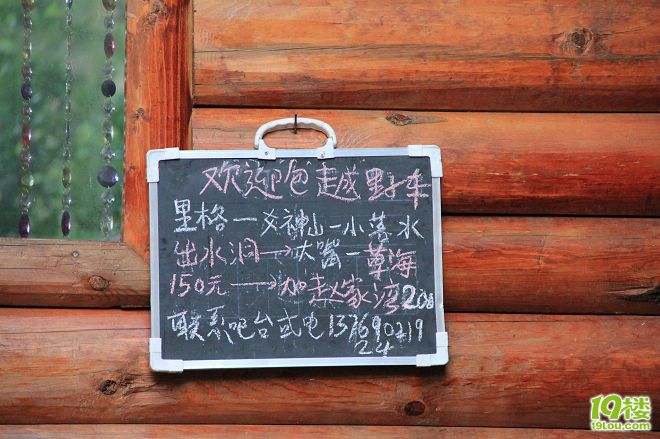 欢迎包越野车
里格一女神山一小落水
出水洞→大嘴一草海
150元→加赵家湾200
联系吧台或电13769021924
19楼
19lou.com